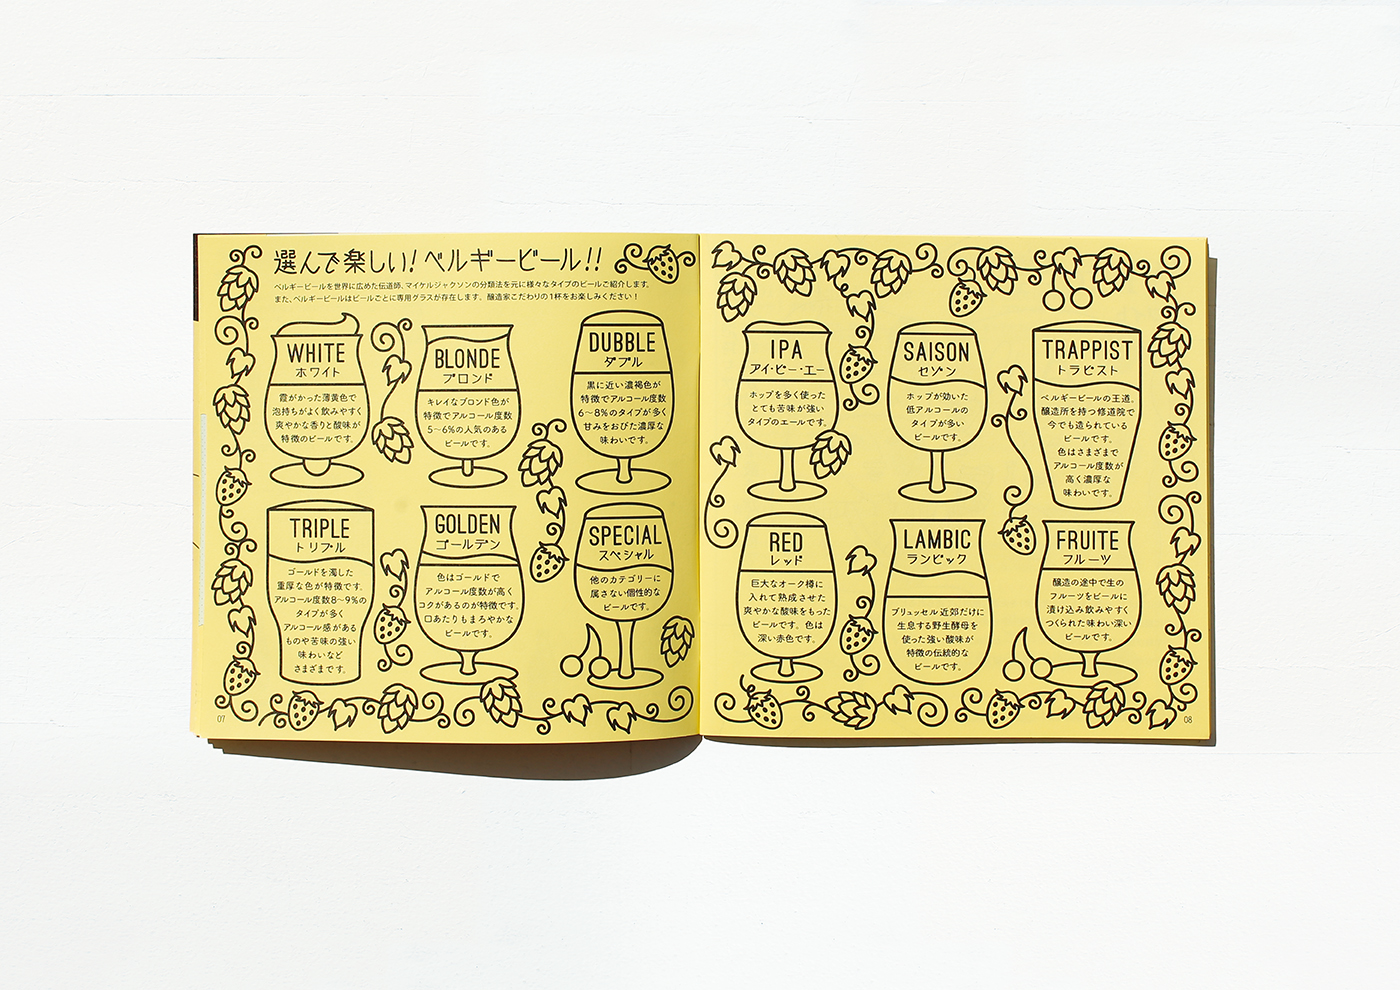 選んで楽しい!ベルギービール!!
ベルギービールを世界に広めた伝道師、マイケルジャクソンの分類法を元に様々なタイプのビールご紹介します。
また、ベルギービールはビールごとに専用グラスが存在します。醸造家こだわりの1杯をお楽しみください!
WHITE
ホワイト
霞がかった薄黄色で
泡持ちがよく飲みやすく
爽やかな香りと酸味が
特徴のビールです。
BLONDE
ブロンド
キレイなブロンド色が
特徴でアルコール度数
5〜6%の人気のある
ビールです。
DUBBLE
ダブル
黒に近い濃褐色が
特徴でアルコール度数
6〜8%のタイプが多く
甘みをおびた濃厚な
味わいです。
TRIPLE
トリプル
ゴールドを濁した
重厚な色が特徴です。
アルコール度数8〜9%の
タイプが多く
アルコール感がある
ものや苦味の強い
味わいなど
さまざまです。
GOLDEN
ゴールデン
色はゴールドで
アルコール度数が高く
コクがあるのが特徴です。
口あたりもまろやかな
ビールです。
SPECIAL
スペシャル
他のカテゴリーに
属さない個性的な
ビールです。
07
IPA
アイ・ピー・エー
ホップを多く使った
とても苦味が強い
タイプのエールです。
SAISON
セゾン
ホップが効いた
低アルコールの
タイプが多い
ビールです。
TRAPPIST
トラピスト
ベルギービールの王道。
醸造所を持つ修道院で
今でも造られている
ビールです。
色はさまざまで
アルコール度数が
高く濃厚な
味わいです。
RED
レッド
巨大なオーク樽に
入れて熟成させた
爽やかな酸味をもった
ビールです。色は
深い赤色です。
LAMBIC
ランビック
ブリュッセル近郊だけに
生息する野生酵母を
使った強い酸味が
特徴の伝統的な
ビールです。
FRUITE
フルーツ
醸造の途中で生の
フルーツをビールに
漬け込み飲みやすく
つくられた味わい深い
ビールです。
08